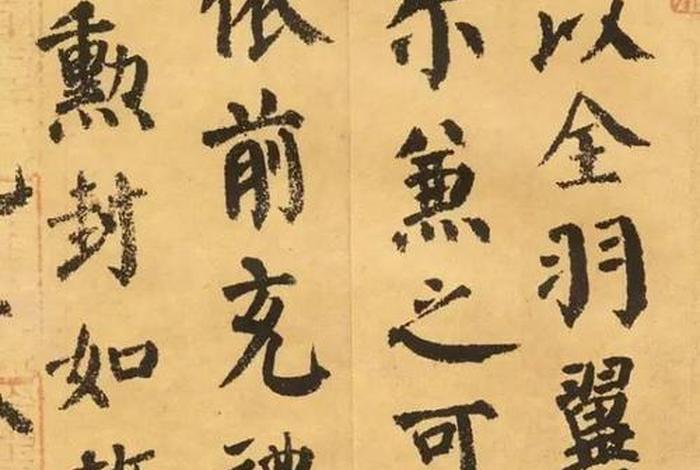 以全羽翼
尔兼之可
依前充禮
勳封如故